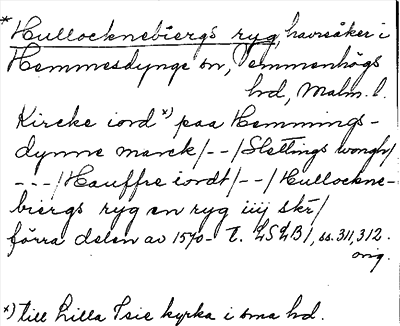 * Hullocknebiergs ryg, havreåker i
Hemmesdynge sn, Vemmenhögs
hd, Malm. l.
Kircke iord x) paa Hemmings-
dynne marck/--/Slettings wongh/
---/Hauffre iordt/--/Hullockne-
biergs ryg en ryg iiij skr/
förra delen av 1570- t. LSLB 1, ss. 311, 312.
orig.
x) till Lilla Isie kyrka i sma hd.